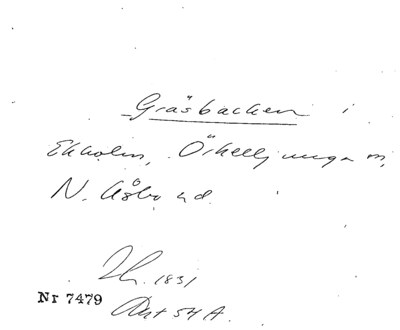 Gräsbacken i
Ekholm, Örkelljunga m,
N. Åsbo hd.
1831
Nr 7479
Akt 54 A.